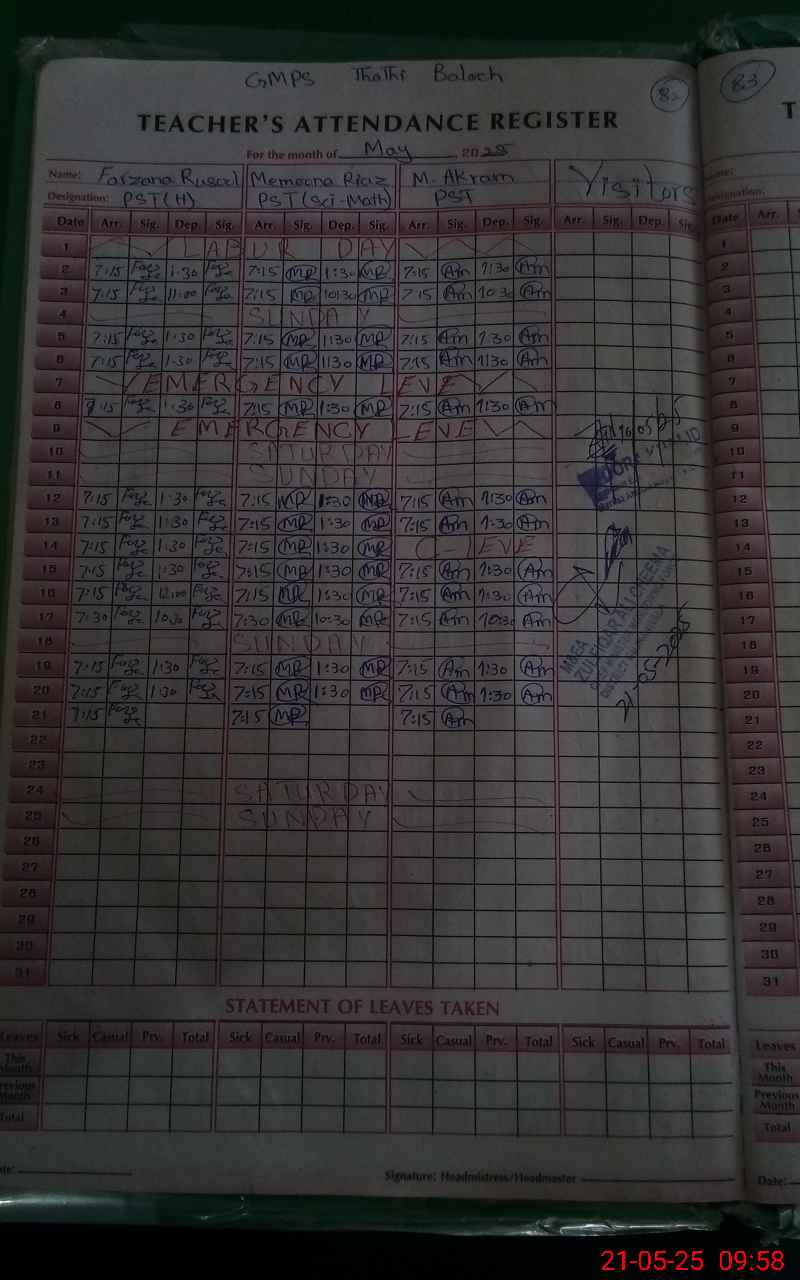 GMPS Thathi Baloch
82
83
TEACHER'S ATTENDANCE REGISTER
For the month of May, 2025
Name: Farzana Rusool Memoona Riaz M. Akram Visitors
Designation: PST(H) PST(Sci-Math) PST
Date Arr. Sig. Dep. Sig. Arr. Sig. Dep. Sig. Arr. Sig. Dep. Sig. Arr. Sig. Dep. Sig. Date Arr.
1 LABUR DAY 1
2 7:15 1:30 7:15 MR 1:30 MR 7:15 Am 1:30 Am 2
3 7:15 11:00 7:15 MR 10:30 MR 7:15 Am 10:30 Am 3
4 SUNDAY 4
5 7:15 1:30 7:15 MR 1:30 MR 7:15 Am 1:30 Am 5
6 7:15 1:30 7:15 MR 1:30 MR 7:15 Am 1:30 Am 6
7 EMERGENCY LEVE 7
8 7:15 1:30 7:15 MR 1:30 MR 7:15 Am 1:30 Am 8
9 EMERGENCY LEVE 9
10 SATURDAY 10
11 SUNDAY 11
12 7:15 1:30 7:15 MR 1:30 MR 7:15 Am 1:30 Am 12
13 7:15 1:30 7:15 MR 1:30 MR 7:15 Am 1:30 Am 13
14 7:15 1:30 7:15 MR 1:30 MR C-LEVE 14
15 7:15 1:30 7:15 MR 1:30 MR 7:15 Am 1:30 Am 15
16 7:15 12:00 7:15 MR 1:30 MR 7:15 Am 1:30 Am 16
17 7:30 10:30 7:30 MR 10:30 MR 7:15 Am 10:30 Am 17
18 SUNDAY 18
19 7:15 1:30 7:15 MR 1:30 MR 7:15 Am 1:30 Am 19
20 7:15 1:30 7:15 MR 1:30 MR 7:15 Am 1:30 Am 20
21 7:15 7:15 MR 7:15 Am 21
22 22
23 23
24 SATURDAY 24
25 SUNDAY 25
26 26
27 27
28 28
29 29
30 30
31 31
MNEA
21-05-2025
STATEMENT OF LEAVES TAKEN
Leaves Sick Casual Prv. Total Sick Casual Prv. Total Sick Casual Prv. Total Sick Casual Prv. Total Leaves
This Month: This Month
Previous Month Previous Month
Total Total
Signature: Headmistress/Headmaster
Date:
21-05-25 09:58